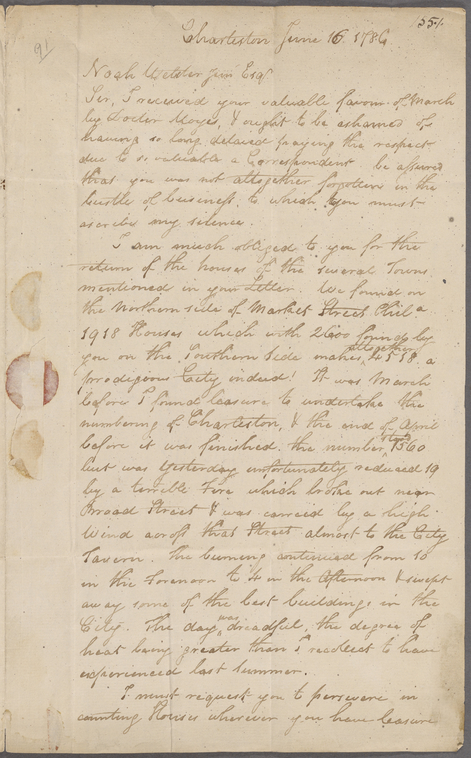 551.
91
Charleston June 16. 1786
Noah Webster Junr Esqr
Sir, I received your valuable favour of March
by Doctor Moyes, & ought to be ashamed of
having so long delayed paying the respect
due to so valuable a Correspondent be assured
that you was not altogether forgotten in the
bustle of business, to which you must
ascribe my silence.
I am much obliged to you for the
return of the houses of the several Towns
mentioned in your Letter. We found on
the Northern side of Market Street Phila
1918 Houses which with 2600 found by
you on the Southern Side makes, altogether 4518. a
prodigious City indeed! It was March
before I found leasure to undertake the
numbering of Charleston, & the end of April
before it was finished. the number, 1560
but was Yesterday unfortunately reduced 19
by a terrible Fire which broke out near
Broad Street & was carried by a high
Wind across that Street almost to the City
Tavern. The burning continued from 10
in the Forenoon to 4 in the Afternoon & swept
away some of the best buildings in the
City. The day was dreadful, the degree of
heat being greater than I recollect to have
experienced last summer.
I must request you to persevere in
counting Houses wherever you have leasure